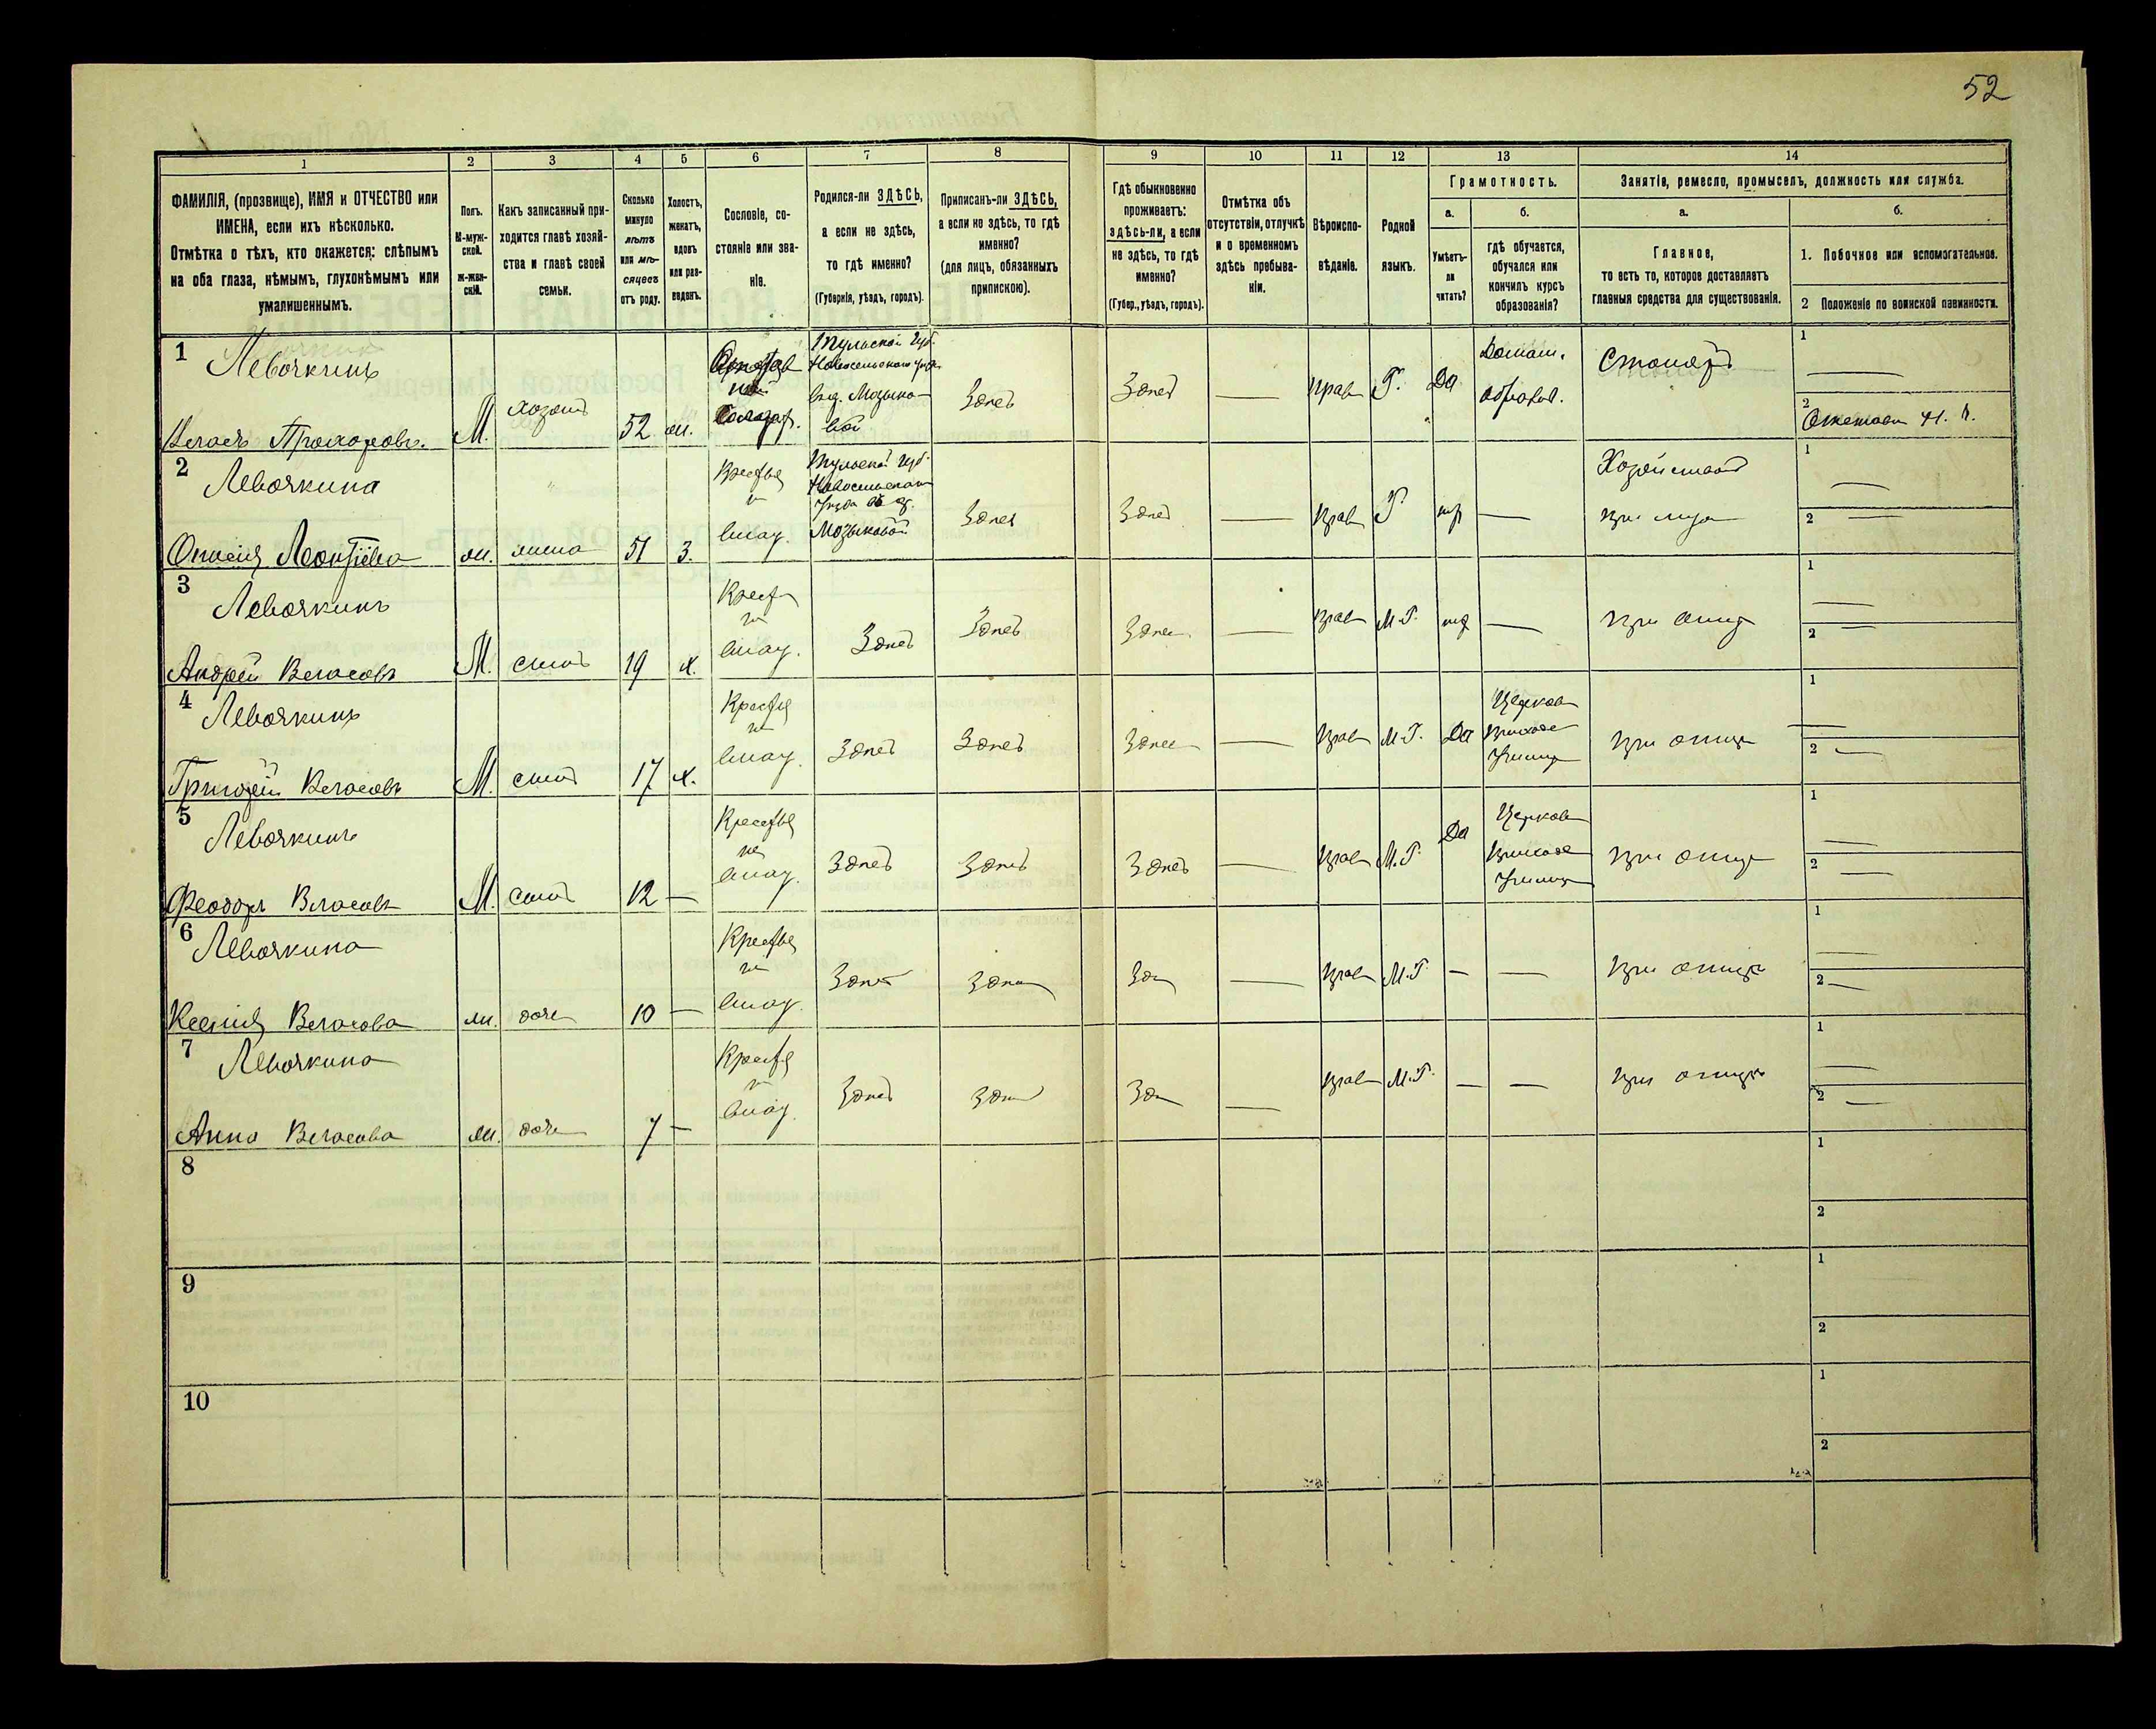 52
1
2
3
4
5
6
7
8
9
10
11
12
13
14
ФАМИЛІЯ, (прозвище), ИМЯ и ОТЧЕСТВО или
ИМЕНА, если ихъ нѣсколько.
Отмѣтка о тѣхъ, кто окажется: слѣпымъ
на оба глаза, нѣмымъ, глухонѣмымъ или
умалишеннымъ.
Полъ.
М-муж-
ской.
ж-жен-
скій.
Какъ записанный при-
ходится главѣ хозяй-
ства и главѣ своей
семьи.
Сколько
минуло
лѣтъ
или мѣ-
сяцевъ
отъ роду.
Холостъ,
женатъ,
вдовъ
или раз-
веденъ.
Сословіе, со-
стояніе или зва-
ніе.
Родился-ли ЗДѢСЬ,
а если не здѣсь,
то гдѣ именно?
(Губернія, уѣздъ, городъ).
Приписанъ-ли ЗДѢСЬ,
а если не здѣсь, то гдѣ
именно?
(для лицъ, обязанныхъ
припискою).
Гдѣ обыкновенно
проживаетъ:
здѣсь-ли, а если
не здѣсь, то гдѣ
именно?
(Губер., уѣздъ, городъ).
Отмѣтка объ
отсутствіи, отлучкѣ
и о временномъ
здѣсь пребыва-
ніи.
Вѣроиспо-
вѣданіе.
Родной
языкъ.
Грамотность.
а.
б.
Умѣетъ-
ли
читать?
гдѣ обучается,
обучался или
кончилъ курсъ
образованія?
Занятіе, ремесло, промыселъ, должность или служба.
а.
б.
Главное,
то есть то, которое доставляетъ
главныя средства для существованія.
1. Побочное или вспомогательное.
2 Положеніе по воинской повинности.
1
Левочкинъ
Власъ Прохоровъ.
М.
хозяинъ
52
ж.
Тульской Губ.
Новосильскаго уѣзда
Здѣсь
Здѣсь
—
прав
Р.
Да
Домаш.
образов.
Столяръ
1
—
2
2
Левочкина
Леонтіева
ж.
жена
51
З.
Крестья
н
влад.
Тульской Губ.
Новосильскаго
Здѣсь
Здѣсь
—
прав
Р
—
Хозяйство
при мужѣ
1
—
2 —
3
Левочкинъ
Андрей Власовъ
М.
сынъ
19
х.
Крестья
н
влад.
Здѣсь
Здѣсь
Здѣсь
—
прав
М.Р.
—
при отцѣ
1
—
2 —
4
Левочкинъ
Григорій Власовъ
М.
сынъ
17
х.
Крестья
н
влад.
Здѣсь
Здѣсь
Здѣсь
—
прав
М.Р.
Да
Церков
приход
Училищ
при отцѣ
1
—
2 —
5
Левочкинъ
Феодоръ Власовъ
М.
сынъ
12
—
Крестья
н
влад.
Здѣсь
Здѣсь
Здѣсь
—
прав
М.Р.
Да
Церков
приход
Училищ
при отцѣ
1
—
2 —
6
Левочкина
Ксенія Власова
ж.
дочь
10
—
Крестья
н
влад.
Здѣсь
Здѣсь
Здѣсь
—
прав
М.Р.
—
—
при отцѣ
1
—
2 —
7
Левочкина
Анна Власова
ж.
дочь
7
—
Крестья
н
влад.
Здѣсь
Здѣсь
Здѣсь
—
прав
М.Р.
—
—
при отцѣ
1
—
2 —
8
1
2
9
1
2
10
1
2